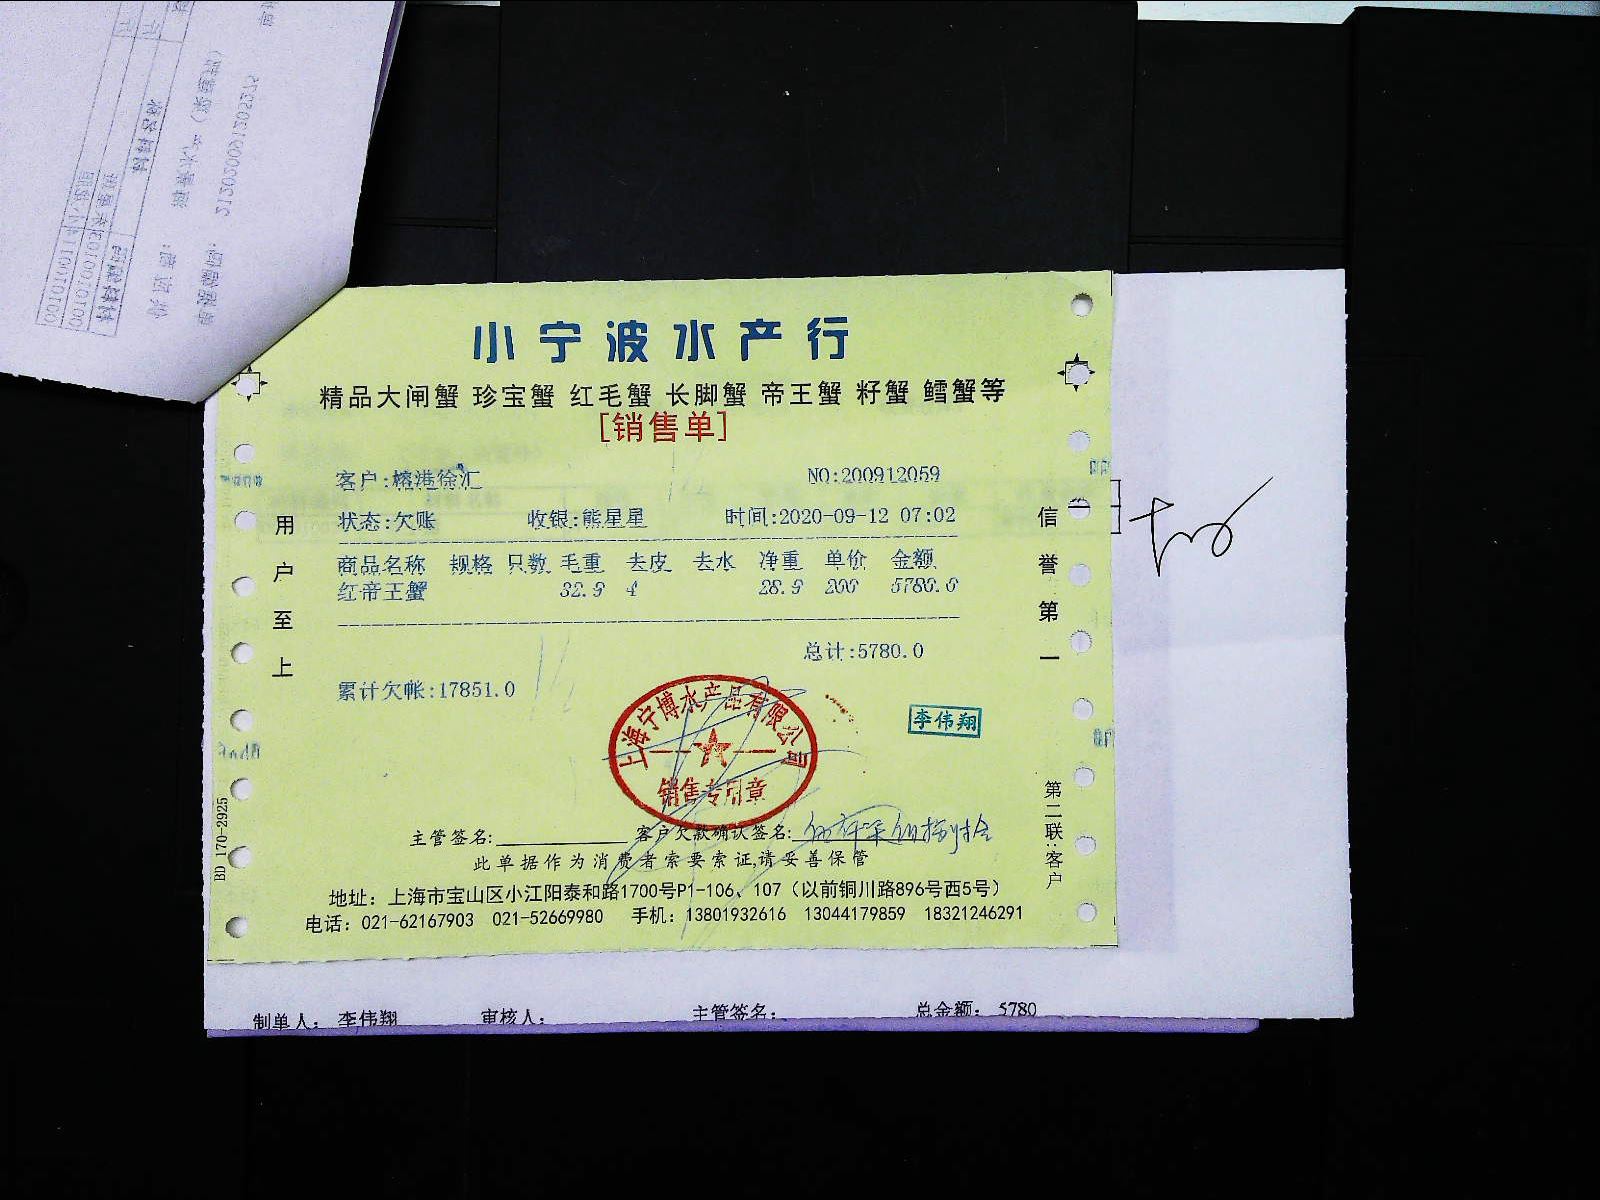 小宁波水产行
精品大闸蟹 珍宝蟹 红毛蟹 长脚蟹 帝王蟹 籽蟹 鳕蟹等
[销售单]
客户:榕港徐汇 NO:200912059
状态:欠账 收银:熊星星 时间:2020-09-12 07:02
商品名称 规格 只数 毛重 去皮 去水 净重 单价 金额
红帝王蟹 32.9 4 28.9 200 5780.0
总计:5780.0
累计欠帐:17851.0
用户至上
信誉第一
上海宁博水产品有限公司
销售专用章
李伟翔
第二联:客户
BD 170-2925
主管签名: 客户欠款确认签名:
此单据作为消费者索要索证,请妥善保管
地址：上海市宝山区小江阳泰和路1700号P1-106、107（以前铜川路896号西5号）
电话：021-62167903 021-52669980 手机：13801932616 13044179859 18321246291
制单人： 李伟翔 审核人： 主管签名： 总金额： 5780